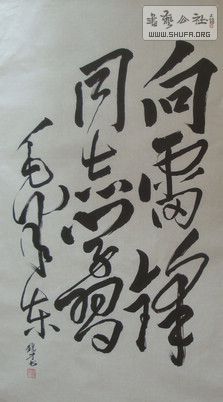 向雷锋
同志学习
毛泽东
书艺公社
WWW.SHUFA.ORG